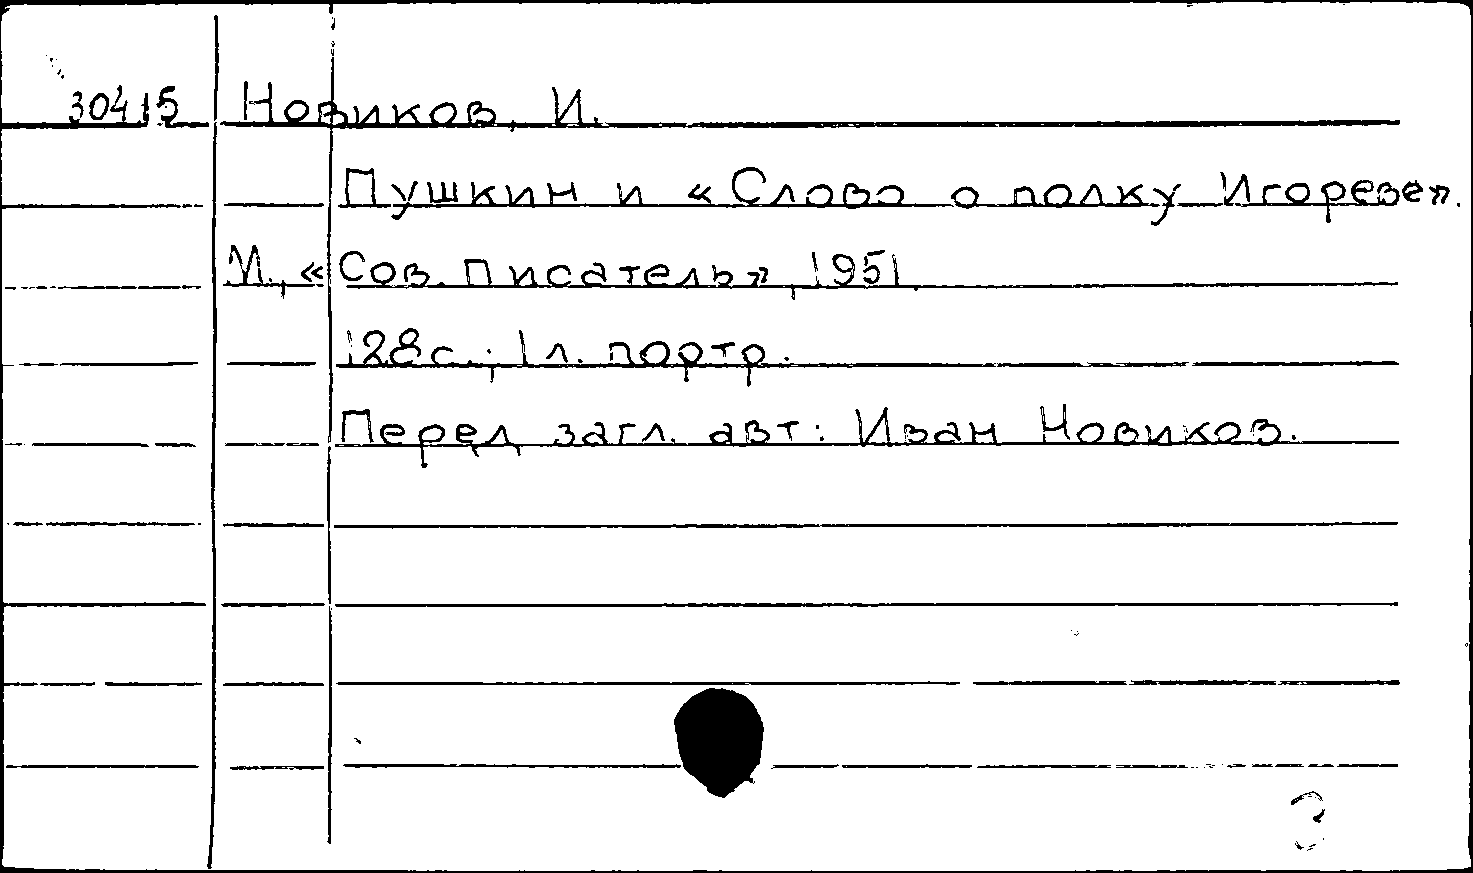 30415 Новиков, И.
Пушкин и «Слово о полку Игореве».
М., «Сов. писатель», 1951.
128с.; 1л. портр.
Перед загл. авт: Иван Новиков.
3